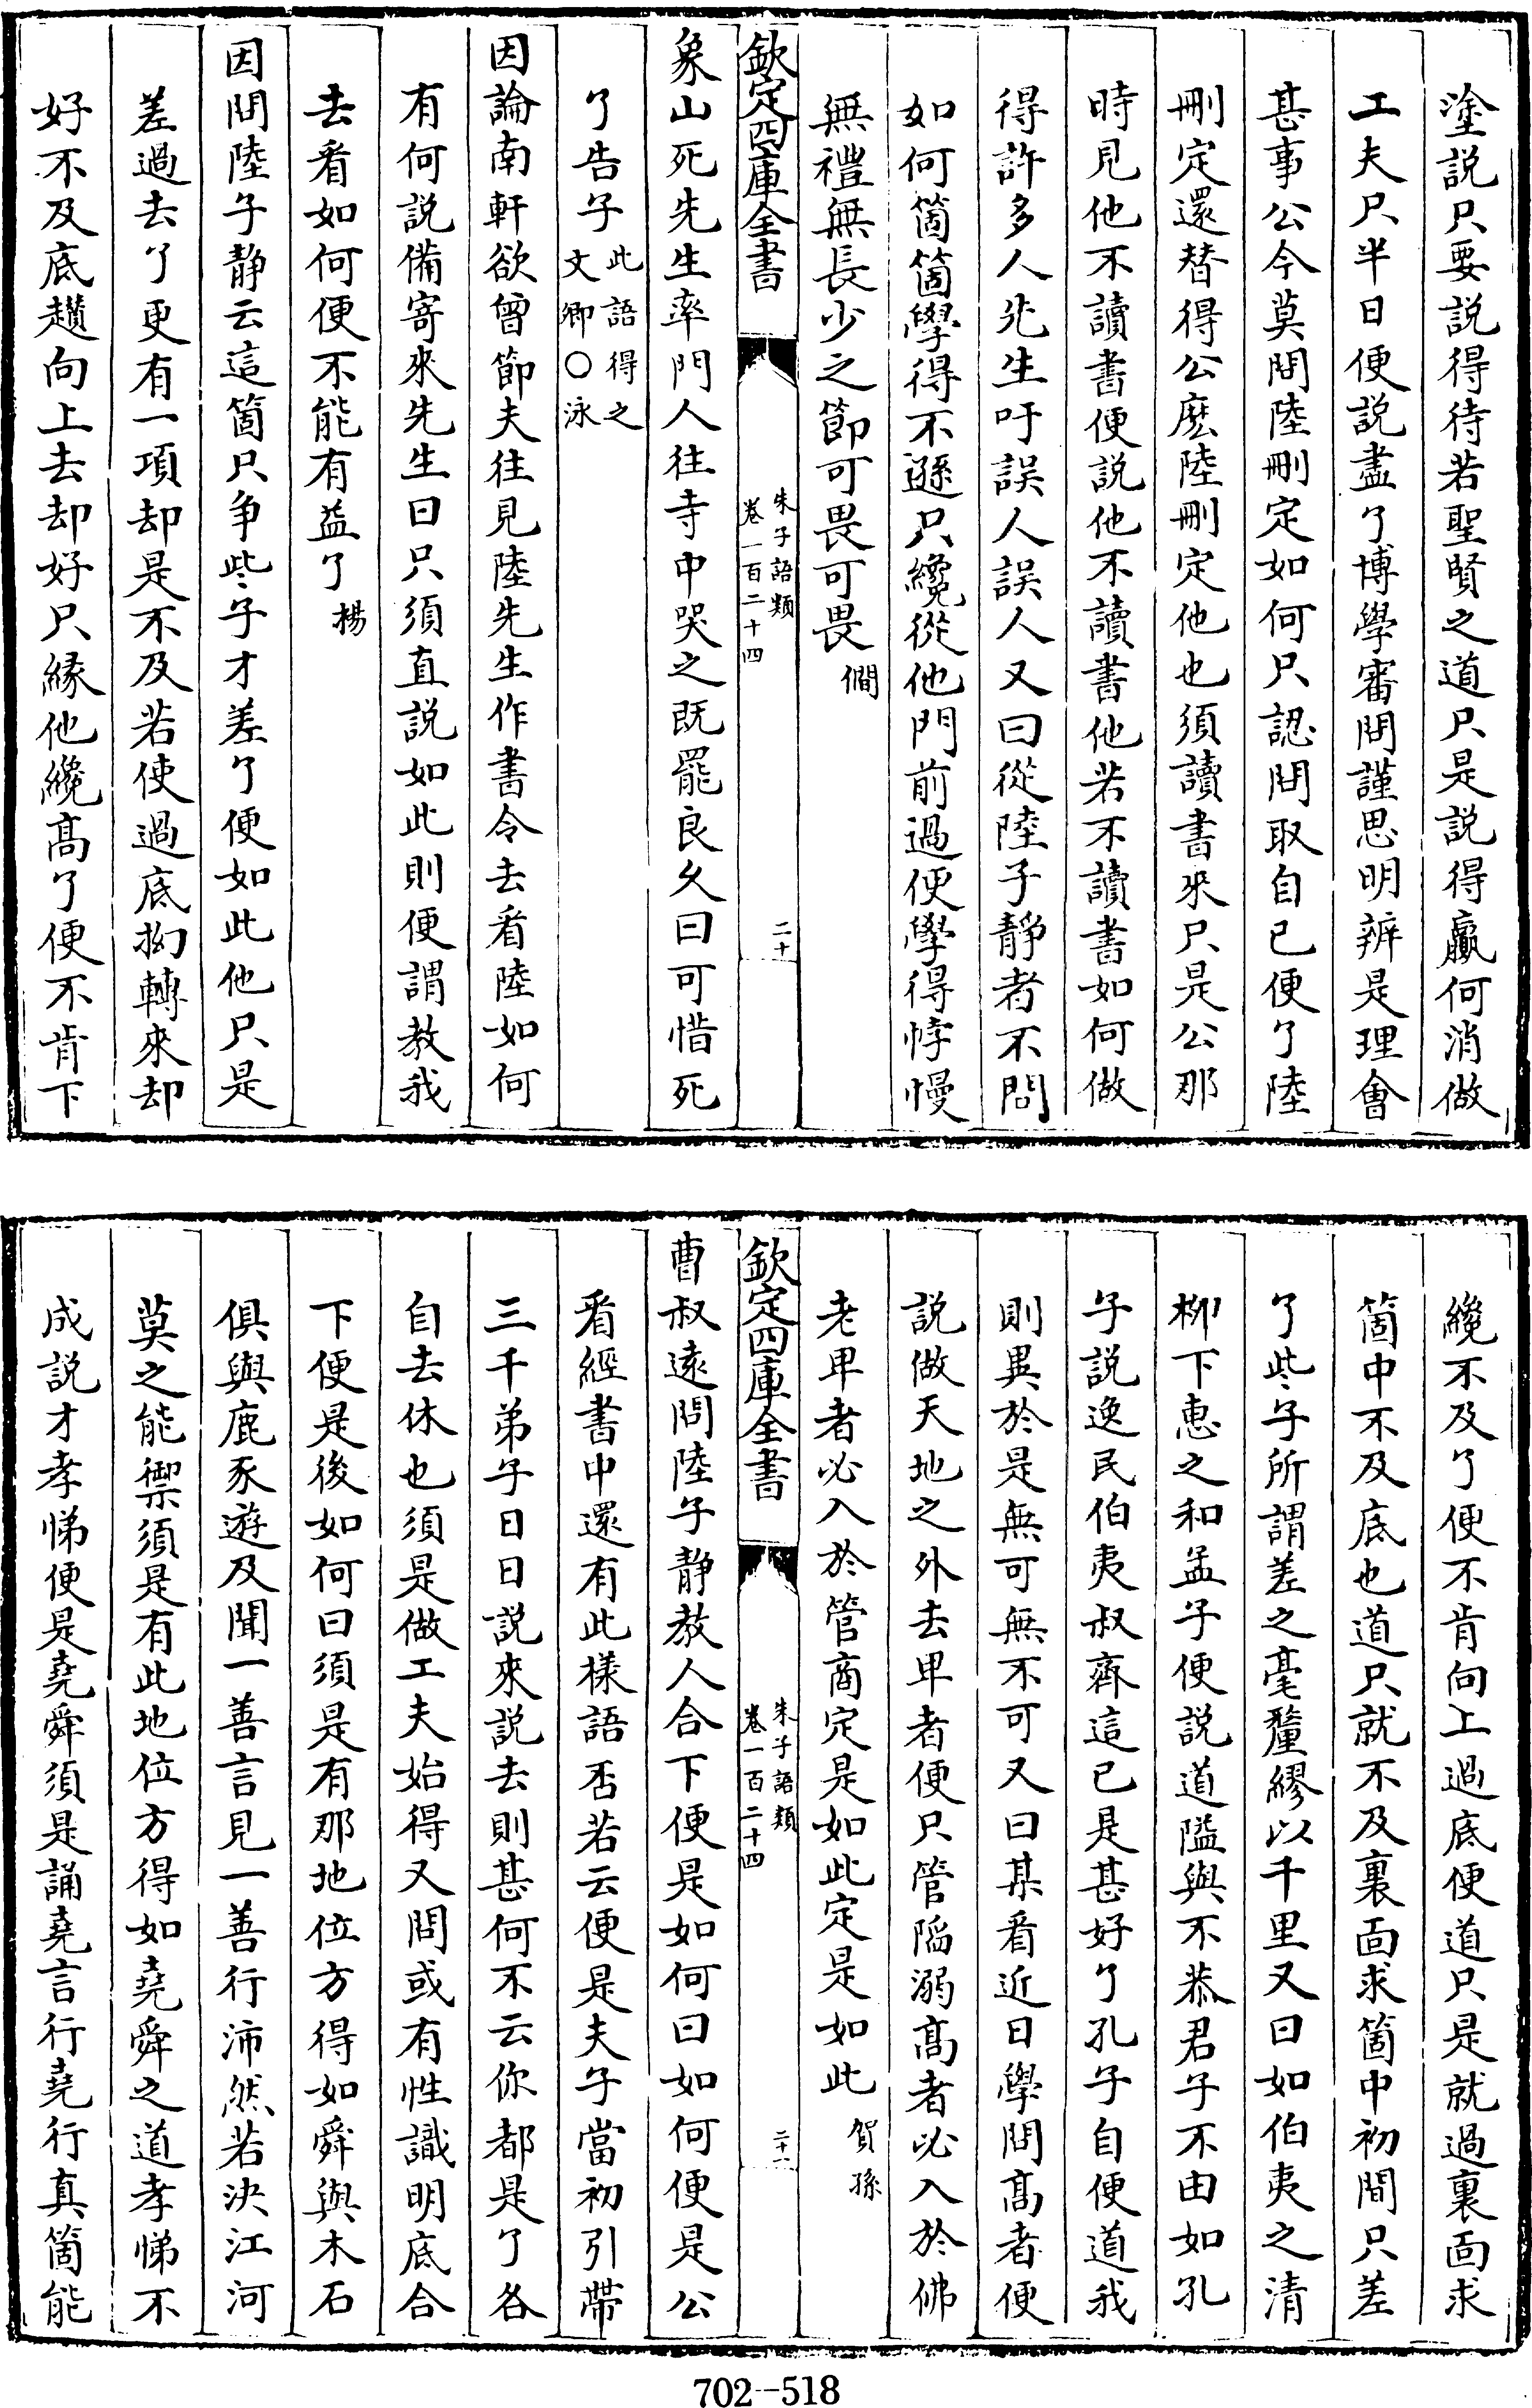 塗説只要説得待若聖賢之道只是説得贏何消做
工夫只半日便説盡了博學審問謹思明辨是理會
甚事公今莫問陸刪定如何只認問取自己便了陸
刪定還替得公麽陸刪定他也須讀書來只是公那
時見他不讀書便説他不讀書他若不讀書如何做
得許多人先生吁誤人誤人又曰從陸子静者不問
如何箇箇學得不遜只纔從他門前過便學得悖慢
無禮無長少之節可畏可畏 僩
欽定四庫全書
朱子語類
卷一百二十四
二十
象山死先生率門人往寺中哭之既罷良久曰可惜死
了告子 此語得之
文卿○泳
因論南軒欲曾節夫往見陸先生作書令去看陸如何
有何説備寄來先生曰只須直説如此則便謂教我
去看如何便不能有益了 楊
因問陸子静云這箇只争些子才差了便如此他只是
差過去了更有一項却是不及若使過底拗轉來却
好不及底趲向上去却好只緣他纔髙了便不肯下
纔不及了便不肯向上過底便道只是就過裏面求
箇中不及底也道只就不及裏面求箇中初間只差
了些子所謂差之毫釐繆以千里又曰如伯夷之清
栁下惠之和孟子便説道隘與不恭君子不由如孔
子説逸民伯夷叔齊這已是甚好了孔子自便道我
則異於是無可無不可又曰某看近日學問髙者便
説做天地之外去卑者便只管陷溺髙者必入於佛
老卑者必入於管商定是如此定是如此 賀孫
欽定四庫全書
朱子語類
卷一百二十四
二十一
曹叔逺問陸子静教人合下便是如何曰如何便是公
看經書中還有此様語否若云便是夫子當初引帶
三千弟子日日説來説去則甚何不云你都是了各
自去休也須是做工夫始得又問或有性識明底合
下便是後如何曰須是有那地位方得如舜與木石
俱與鹿豕遊及聞一善言見一善行沛然若決江河
莫之能禦須是有此地位方得如堯舜之道孝悌不
成説才孝悌便是堯舜須是誦堯言行堯行真箇能
702-518